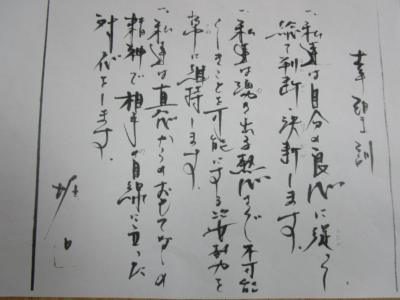 訓
一、私達は自分の良心に従
総て判断・決断します。
一、私達は 出る 不可能
ことを可能にする 力を
常に維持します。
一、私達は真心からのおもてなしの
精神で相手の目線に立った
対応をします。